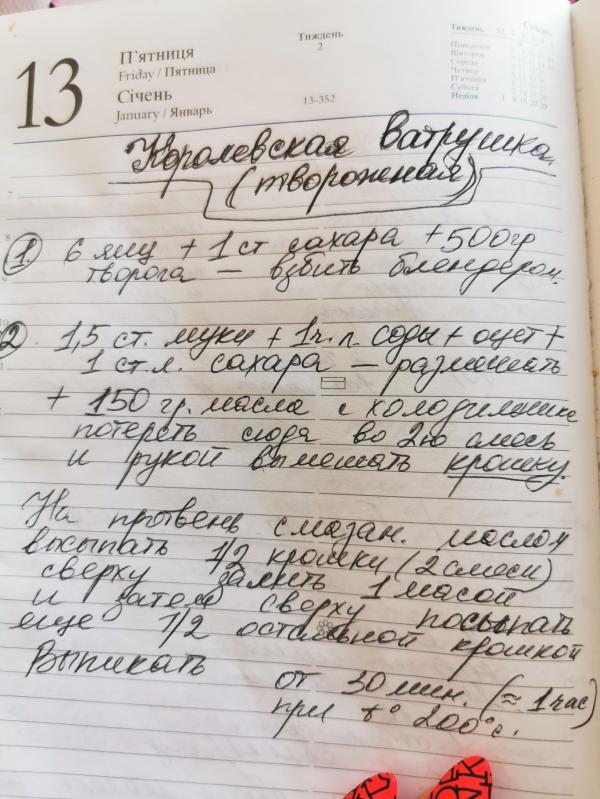 13
П'ятниця
Friday / Пятница
Січень
January / Январь
Тиждень
2
13-352
Січень
Тиждень 52 1
Понеділок
Вівторок
Середа
Четвер
П'ятниця
Субота
Неділя 1 8 15 22 29
Королевская ватрушка
(творожная)
7
8
1. 6 яиц + 1 ст сахара + 500гр
творога – взбить блендером.
2. 1,5 ст. муки + 1 ч. л. соды + оцет +
1 ст. л. сахара – размешать
+ 150 гр. масла с холодильника
потереть сюда во 2ю смесь
и рукой вымешать крошку.
На протвень смазан. маслом
высыпать 1/2 крошки (2 смеси)
сверху залить 1 масой
и затем сверху посыпать
еще 1/2 остальной крошкой
Выпикать от 30 мин. (≈ 1 час)
при t° 200°с.